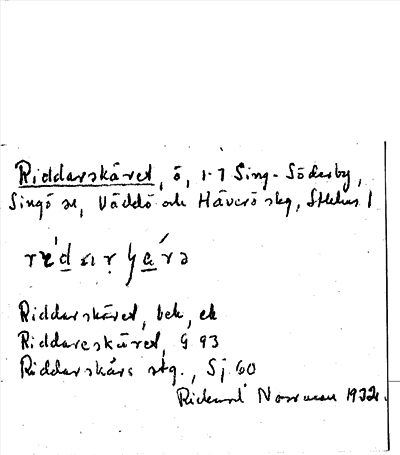 Riddarskäret, ö, 1-7 Sing-Söderby,
Singö sn, Väddö och Häverö skg, Sthlms l
Riddarskäret, bek, ek
Riddareskäret, G 93
Riddarskärs stg., Sj. 60
Rickard 1932.